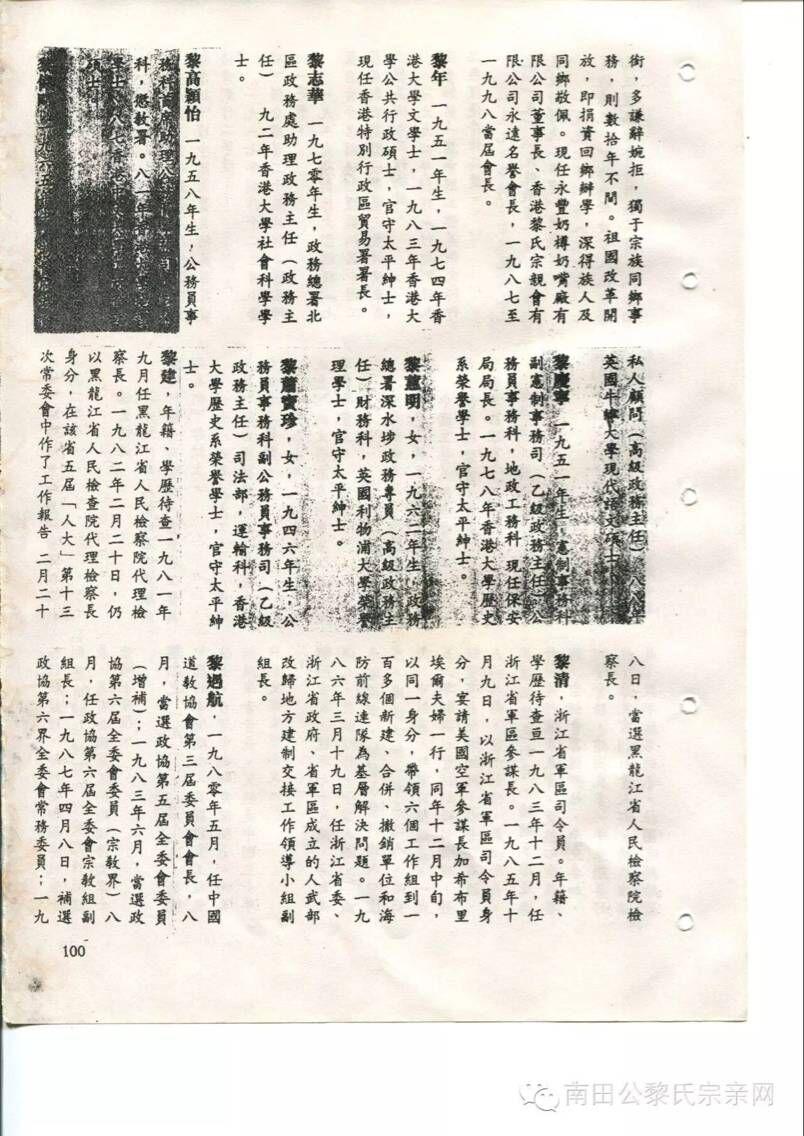 銜，多謙辭婉拒，獨于宗族同鄉事
務，則數拾年不間。祖國改革開
放，即捐資回鄉辦學，深得族人及
同鄉敬佩。現任永豐奶樽奶嘴廠有
限公司董事長、香港黎氏宗親會有
限公司永遠名譽會長，一九八七至
一九九八當屆會長。
黎年　一九五一年生，一九七四年香
港大學文學士，一九八三年香港大
學公共行政碩士，官守太平紳士，
現任香港特別行政區貿易署署長。
黎志華　一九七零年生，政務總署北
區政務處助理政務主任（政務主
任）　九二年香港大學社會科學學
士。
黎高穎怡　一九五八年生，公務員事
務科首席助理
科，懲教署。八
私人顧問（高級政務主任）
英國牛津大學現代語文碩士
黎慶寧　一九五一年生，憲制事務科
副憲制事務司（乙級政務主任）公
務員事務科，地政工務科　現任保安
局局長。一九七八年香港大學歷史
系榮譽學士，官守太平紳士。
黎蕙明，女，一九六二年生，政務
總署深水埗政務專員（高級政務主
任）財務科，英國利物浦大學榮譽
理學士，官守太平紳士。
黎蕭寶珍，女，一九四六年生，公
務員事務科副公務員事務司（乙級
政務主任）司法部，運輸科，香港
大學歷史系榮譽學士，官守太平紳
士。
黎建，年籍、學歷待查一九八一年
九月任黑龍江省人民檢察院代理檢
察長。一九八二年二月二十日，仍
以黑龍江省人民檢查院代理檢察長
身分，在該省五屆「人大」第十三
次常委會中作了工作報告　二月二十
八日，當選黑龍江省人民檢察院檢
察長。
黎清，浙江省軍區司令員。年籍、
學歷待查亘一九八三年十二月，任
浙江省軍區參謀長。一九八五年十
月九日，以浙江省軍區司令員身
分，宴請美國空軍參謀長加希布里
埃爾夫婦一行，同年十二月中旬，
以同一身分，帶領六個工作組到一
百多個新建、合併、撤銷單位和海
防前線連隊為基層解決問題。一九
八六年三月十九日，任浙江省委、
浙江省政府、省軍區成立的人武部
改歸地方建制交接工作領導小組副
組長。
黎遇航，一九八零年五月，任中國
道教協會第三屆委員會會長，八
月，當選政協第五屆全委會委員
（增補）；一九八三年六月，當選政
協第六屆全委會委員（宗教界）八
月，任政協第六屆全委會宗教組副
組長；一九八七年四月八日，補選
政協第六界全委會常務委員；一九
100
南田公黎氏宗亲网